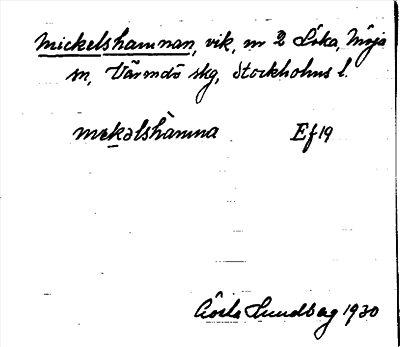 Mickelshamnan, vik, nr 2 Löka, Möja
sn, Värmdö skg, Stockholms l.
mɛk̲əlshàmna Ef 19
Gösta Lundberg 1930